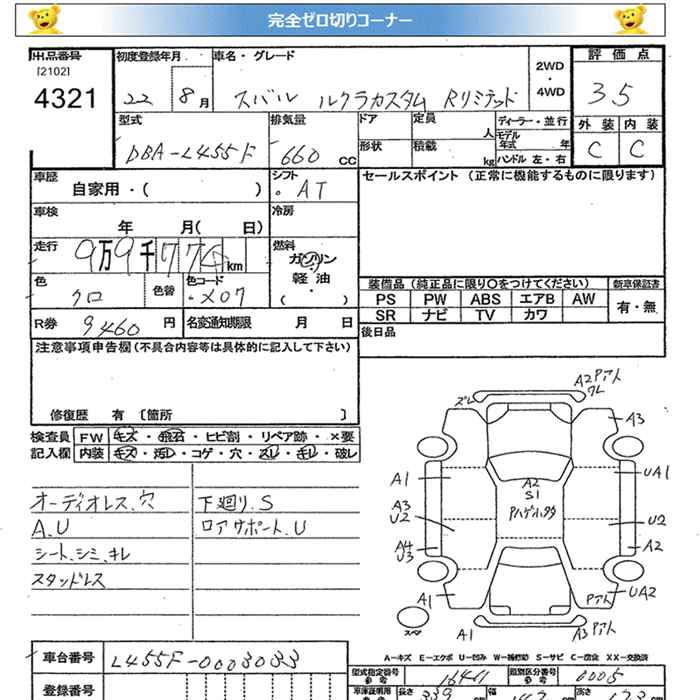 完全ゼロ切りコーナー
出品番号
[2102]
4321
初度登録年月
22 8月
車名・グレード
スバル ルクラカスタム Rリミテッド
2WD
・
4WD
評価点
3.5
外装 内装
C C
型式
DBA-L455F
排気量
660 cc
ドア
形状
定員
人
積載
kg
ディーラー・並行
モデル
年式 年
ハンドル 左・右
車歴
自家用・( )
シフト
・AT
セールスポイント (正常に機能するものに限ります)
車検
年 月( 日)
冷房
走行
9万9千77 km
燃料
ガソリン
・
軽油
( ・ )
色
クロ
色替
色コード
・X07
装備品(純正品に限り○をつけてください)
新車保証書
PS PW ABS エアB AW
SR ナビ TV カワ
有・無
R券 9460 円
名変通知期限 月 日
後日品
注意事項申告欄(不具合内容等は具体的に記入して下さい)
修復歴 有 [箇所 ]
検査員 FW キズ・飛石・ヒビ割・リペア跡・×要
記入欄 内装 キズ・汚レ・コゲ・穴・スレ・キレ・破レ
オーディオレス、穴
A、U
シート、シミ、キレ
スタッドレス
下廻り、S
ロアサポート、U
ズレ
A2 Pアト
ワレ
A3
A1
UA1
A2
S1
Pハゲ
A3
U2
U2
A4
U3
A2
A1
Pアト UA2
スペア
A1
A3 Pアト
A-キズ E-エクボ U-凹み W-補修跡 S-サビ C-腐食 XX-交換済
車台番号 L455F-0003033
登録番号
型式指定番号
参考
16411
類別区分番号
参考
0005
車庫証明用
長さ 339 cm
幅
高さ